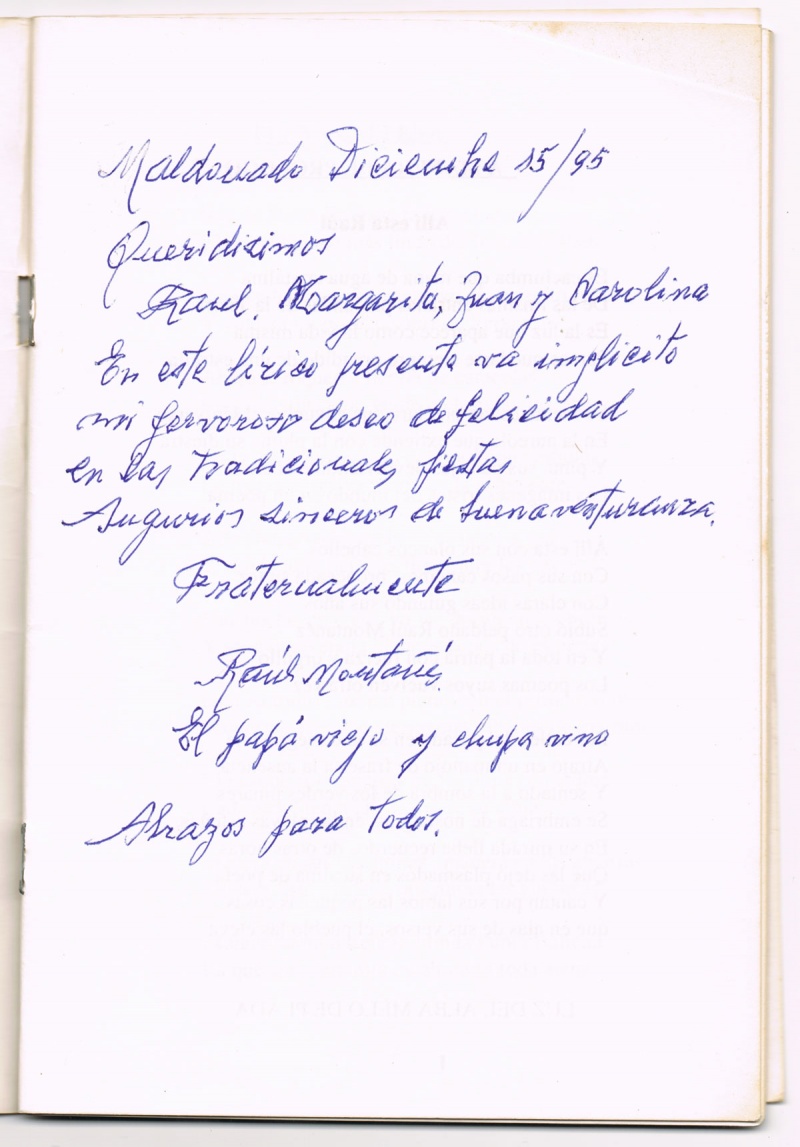 Maldonado Diciembre 15/95
Queridisimos
Raul, Margarita, Juan y Carolina
En este lírico presente va implicito
mi fervoroso deseo de felicidad
en las tradicionales fiestas
Augurios sinceros de buenaventuranza.
Fraternalmente
Raúl Montañés
El papá viejo y chupa vino
Abrazos para todos.